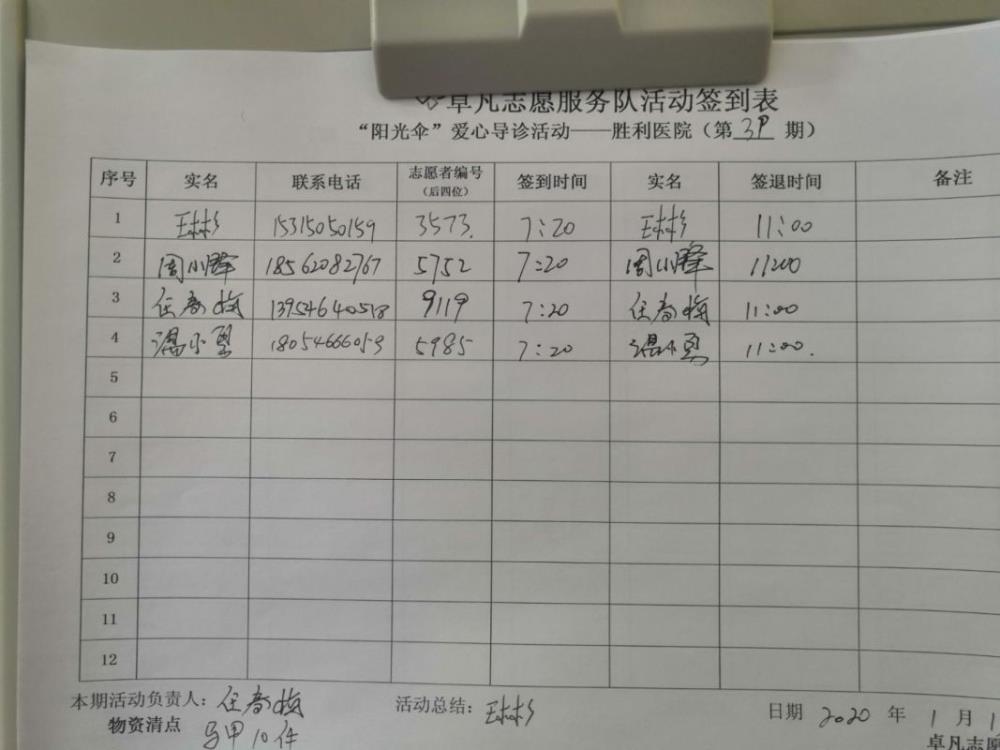 卓凡志愿服务队活动签到表
“阳光伞”爱心导诊活动——胜利医院（第39期）
序号 实名 联系电话 志愿者编号（后四位） 签到时间 实名 签退时间 备注
1 王彬彬 15315050159 3573. 7:20 王彬彬 11:00
2 周小峰 18562082767 5752 7:20 周小峰 11:00
3 任春梅 13954640518 9119 7:20 任春梅 11:00
4 温小 18054666059 5985 7:20 温小 11:00.
5
6
7
8
9
10
11
12
本期活动负责人：任春梅 活动总结：王彬彬 日期 2020 年 1 月 1
物资清点 马甲10件 卓凡志愿